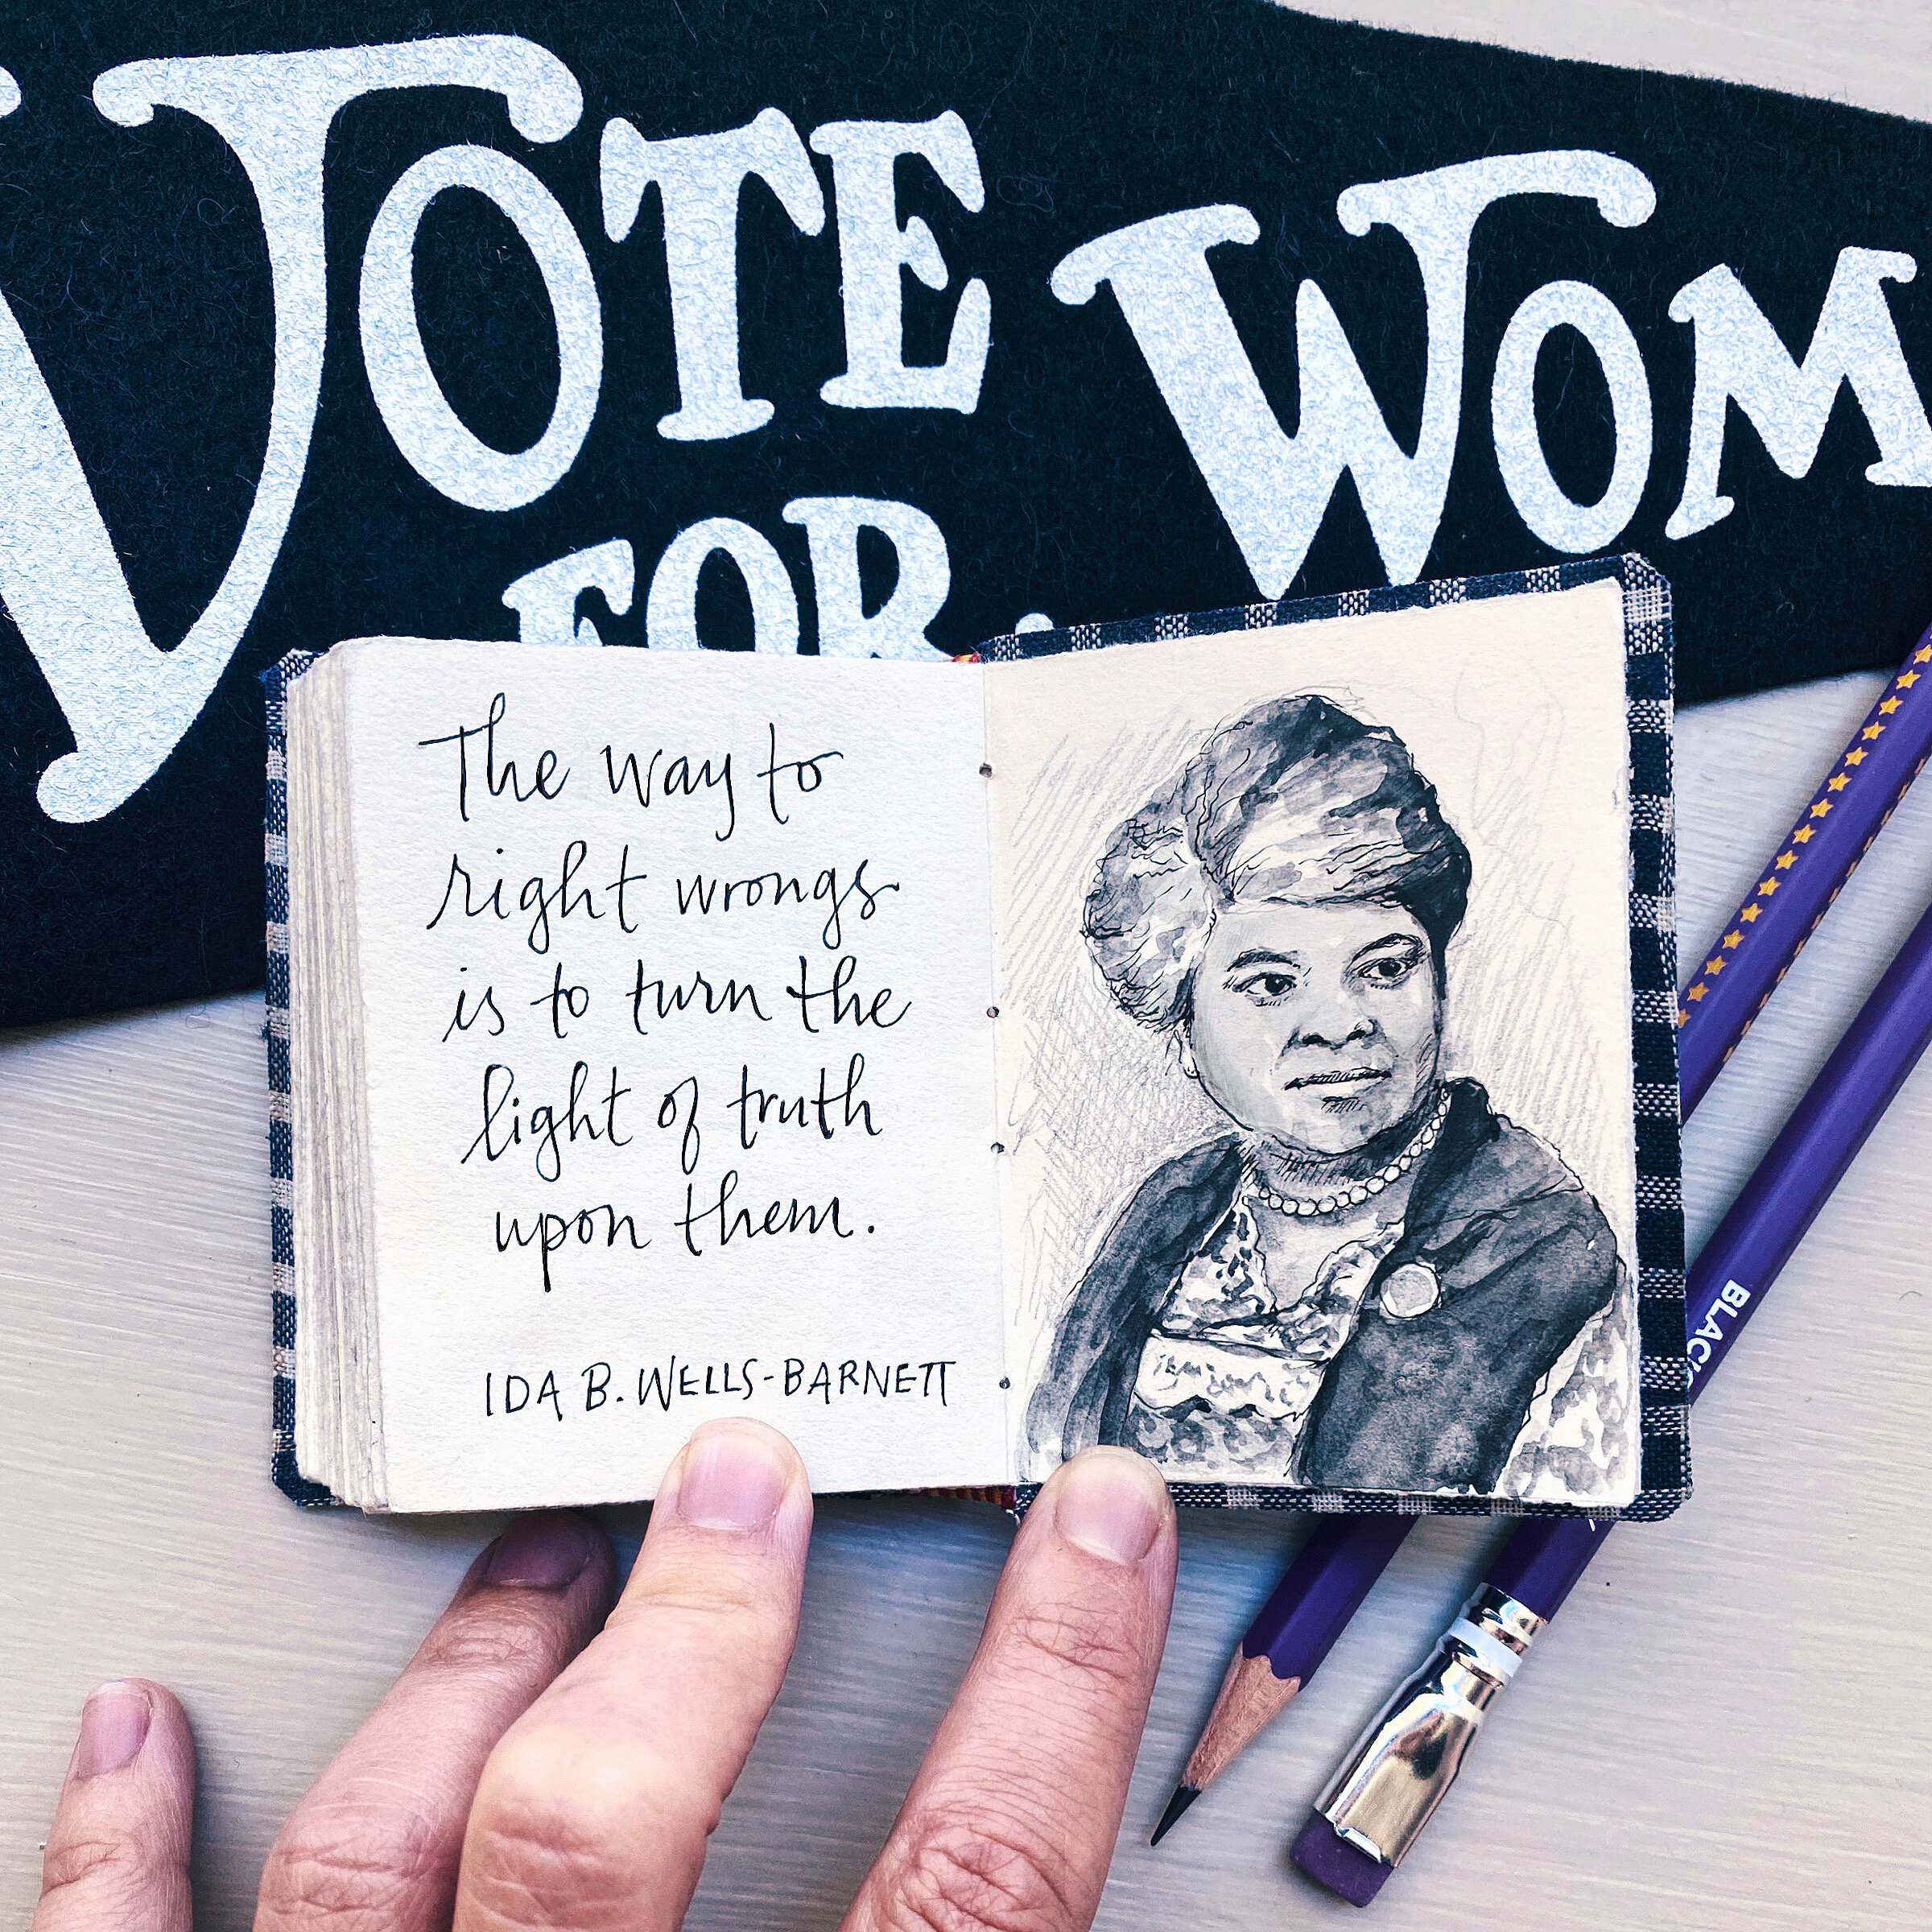 VOTE
FOR
WOM
The way to
right wrongs
is to turn the
light of truth
upon them.
IDA B. WELLS-BARNETT
BLAC